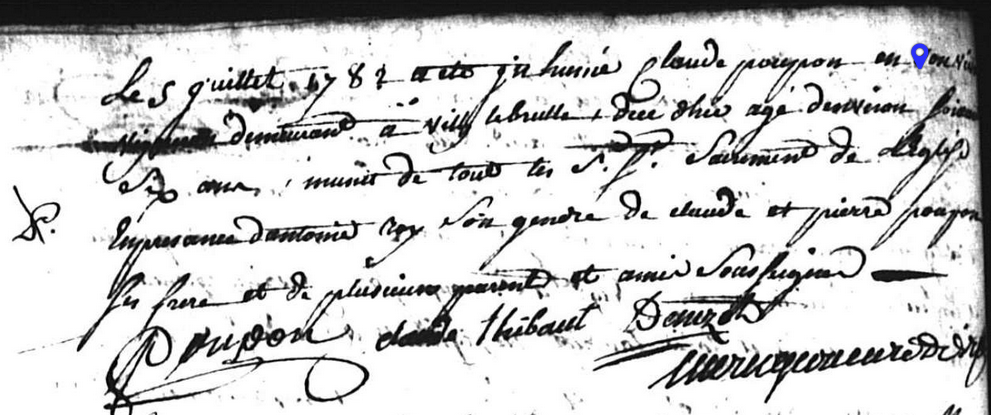 Le 5 juillet 1782 a eté jnhumé Claude poupon en son viv
vigneron demeurant à Villy lebrulle, decé dhier agé denviron soixante
Six ans, munit de tout les S. Sacrement de L'Eglise
D.
En presence dantoine rey son gendre de claude et pierre poupon
ses frere et de plusieur parent et amis Soussigné
Poupon claude thibaut Dauzot